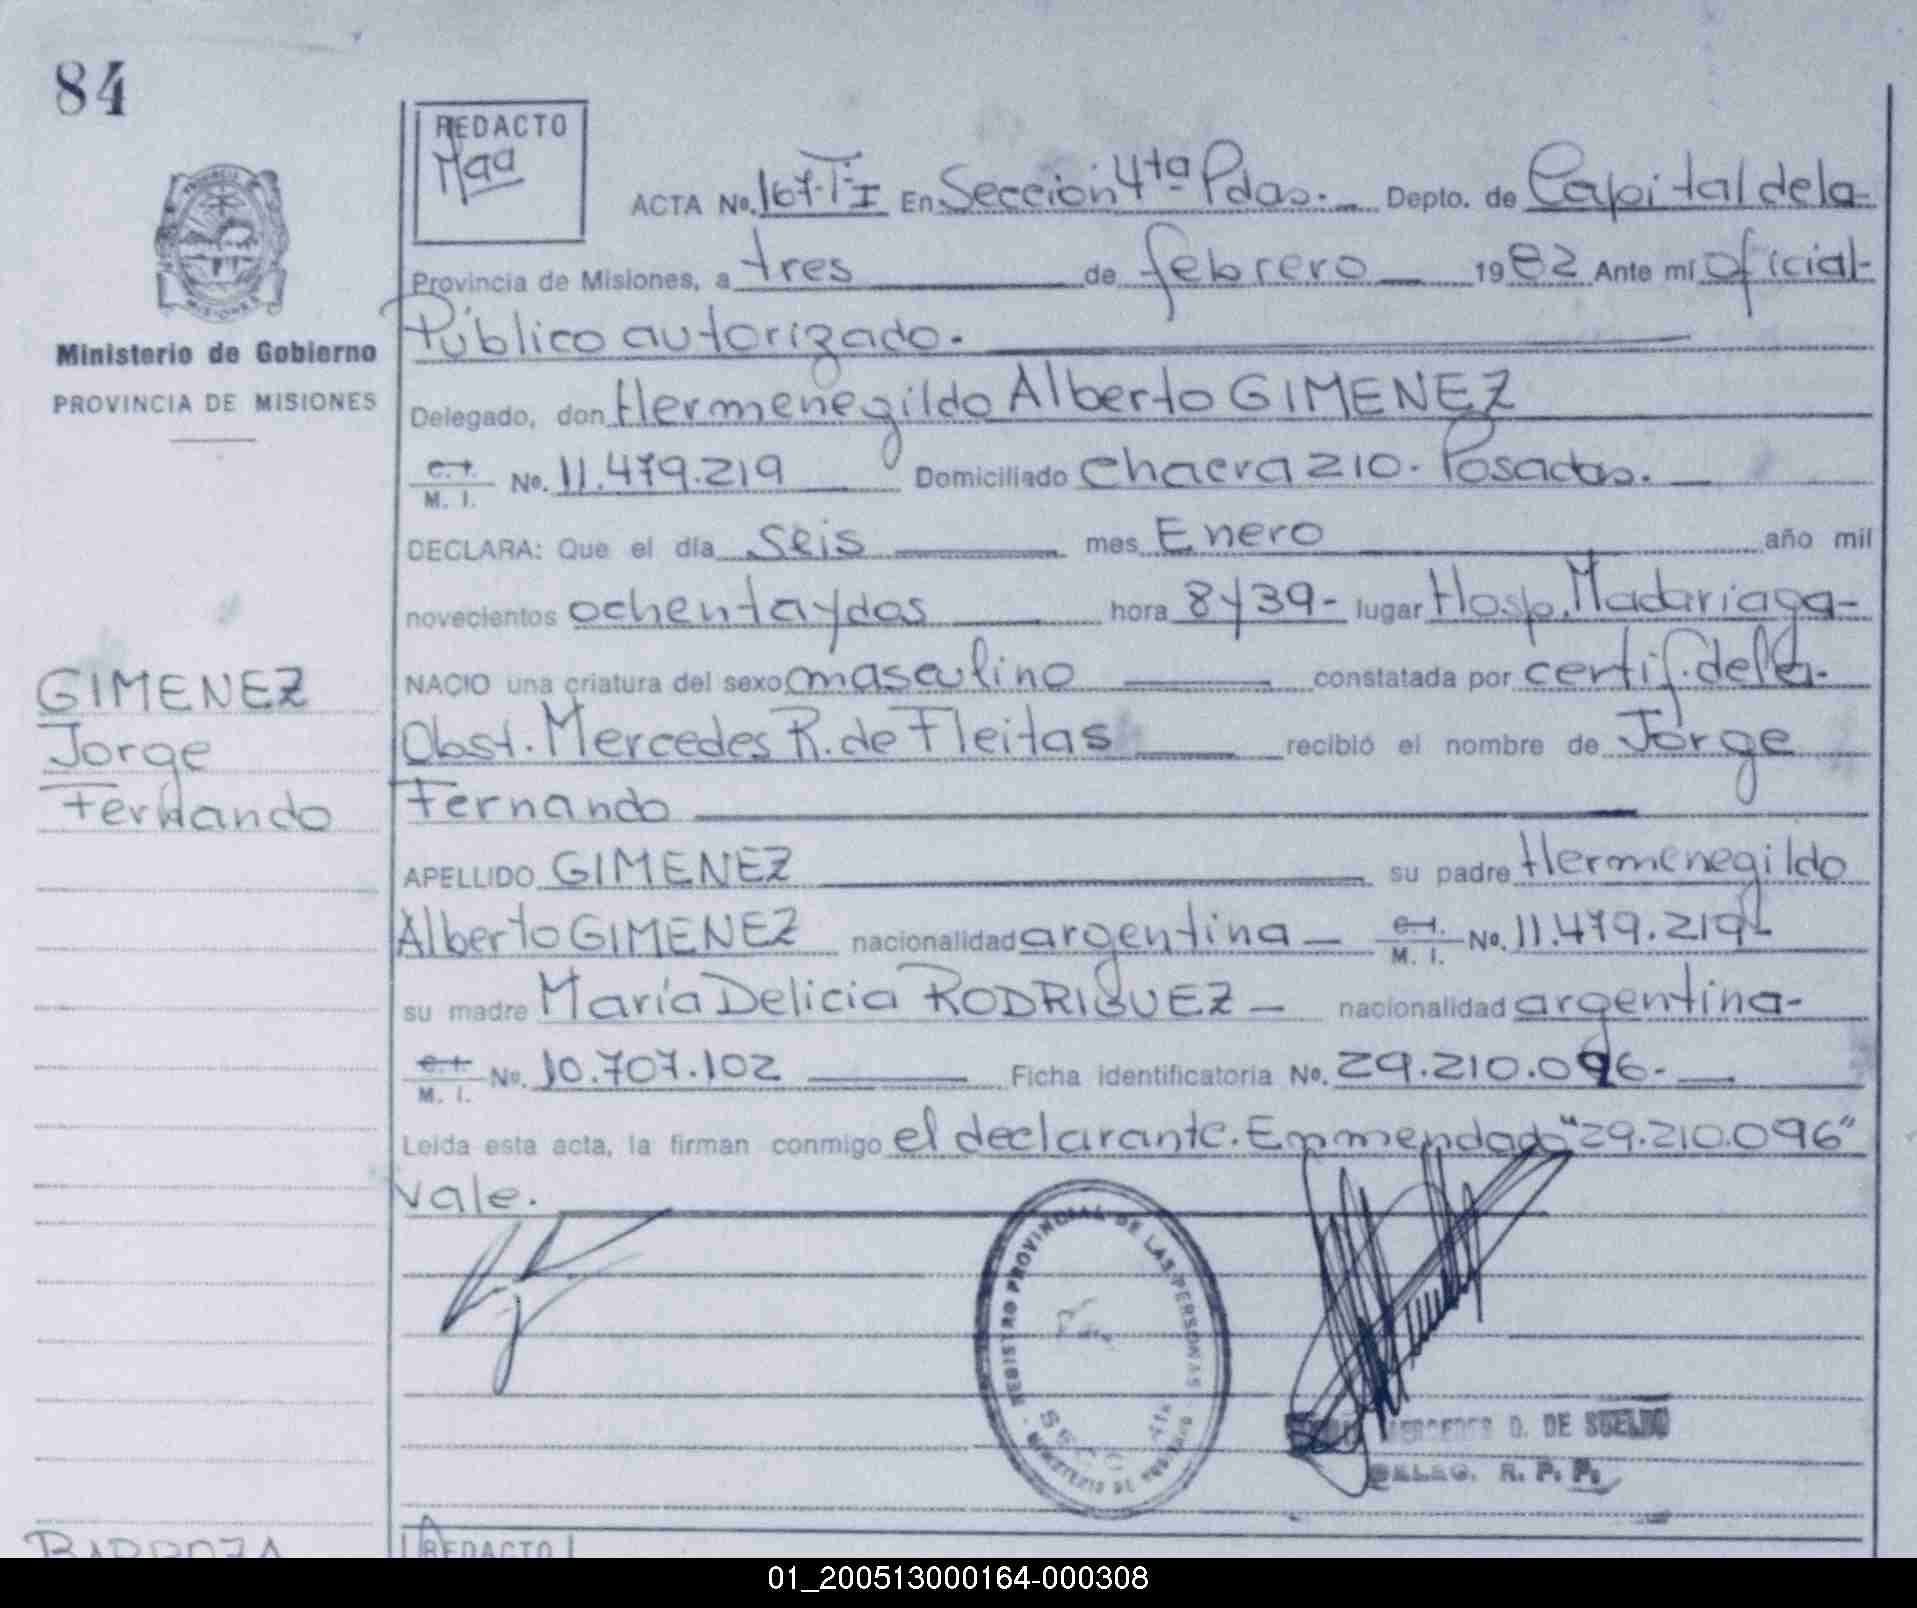 84
REDACTO
Maa
ACTA No. 167-T-I En Sección 4ta Pdas. Depto. de Capital de la
Provincia de Misiones, a tres de febrero 1982 Ante mí Oficial
Público autorizado.
Ministerio de Gobierno
PROVINCIA DE MISIONES
Delegado, don Hermenegildo Alberto GIMENEZ
C.I. M. I. No. 11.479.219 Domiciliado chacra 210. Posadas.
DECLARA: Que el día seis mes Enero año mil
novecientos ochenta y dos hora 8 y 39- lugar Hosp. Madariaga-
NACIO una criatura del sexo masculino constatada por certif. de la
Obst. Mercedes R. de Fleitas recibió el nombre de Jorge
Fernando
GIMENEZ
Jorge
Fernando
APELLIDO GIMENEZ su padre Hermenegildo
Alberto GIMENEZ nacionalidad argentina C.I. M. I. No. 11.479.219-
su madre María Delicia RODRIGUEZ - nacionalidad argentina-
C.I. M. I. No. 10.707.102 Ficha identificatoria No. 29.210.096-
Leida esta acta, la firman conmigo el declarante. Enmendado "29.210.096"
vale.
REGISTRO PROVINCIAL DE LAS PERSONAS
MINISTERIO DE GOBIERNO
MERCEDES D. DE SUELDO
DELEG. R. P. P.
BARROZA
REDACTO
01_200513000164-000308